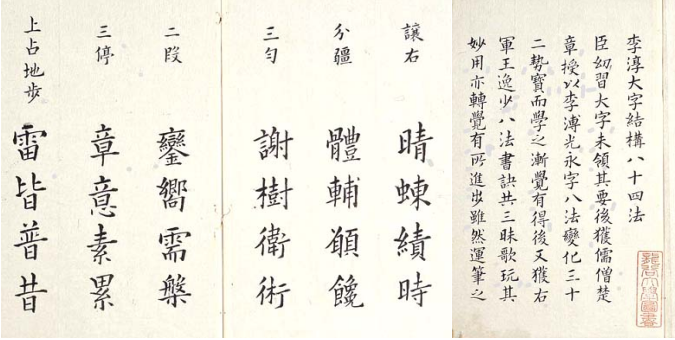 李淳大字結構八十四法
臣幼習大字未領其要後獲儒僧楚
章授以李溥光永字八法變化三十
二勢寶而學之漸覺有得後又獲右
軍王逸少八法書訣共三昧歌玩其
妙用亦轉覺有所進步雖然運筆之
讓右
晴蝀績時
分疆
體輔願饞
三勻
謝樹衛術
二段
鑾嚮需槃
三停
章意素累
上占地步
雷皆普昔